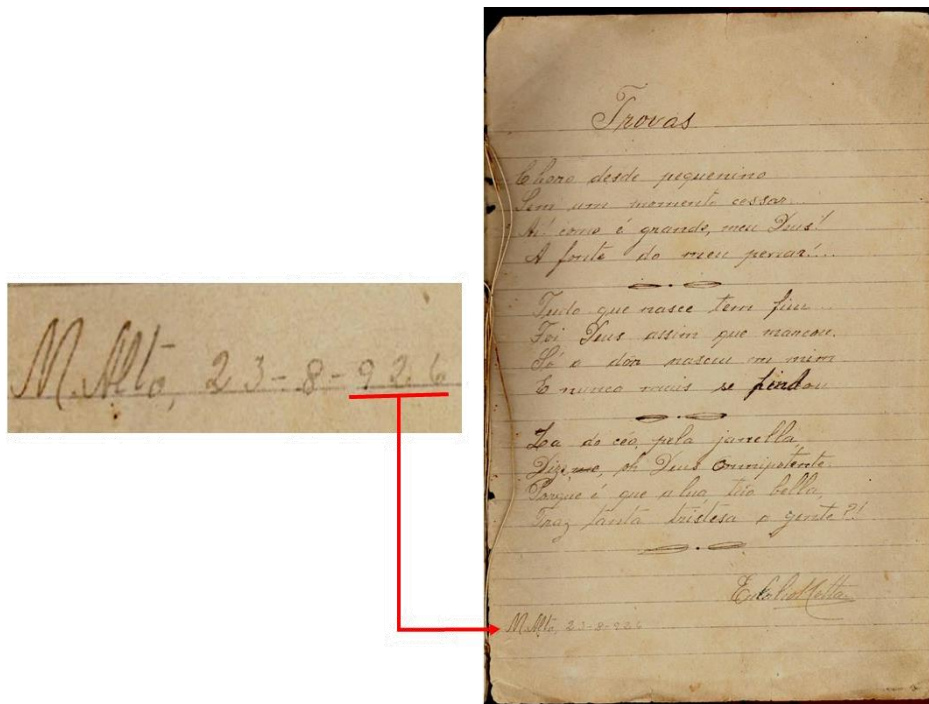 M. Alto, 23-8-926
Trovas
Choro desde pequenino
Sem um momento cessar...
Ai! como é grande, meu Deus!
A fonte do meu penar!...
Tudo que nasce tem fim
Foi Deus assim que marcou.
Só a dôr nasceu em mim
E nunca mais se findou
La do céo, pela janella,
Dize-me, oh Deus Omnipotente.
Porque é que a lua, tão bella,
Traz tanta tristesa a gente?!
Eulalio Motta
M. Alto, 23-8-926